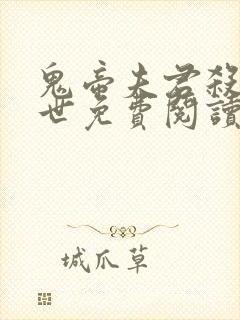 鬼帝夫君殺
世免費閱讀
城爪草